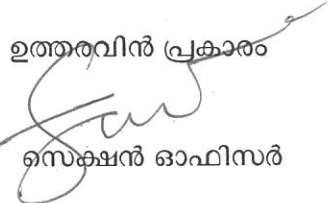 ഉത്തരവിൻ പ്രകാരം
സെക്ഷൻ ഓഫിസർ